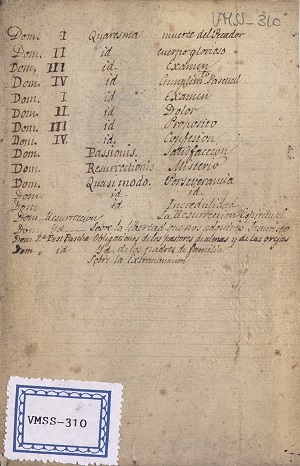 VMSS-310
Dom. I Quaresma muerte del Pecador
Dom. II id cuerpo glorioso
Dom. III id. Examen
Dom. IV id Cumplim.to Pascual
Dom. I id Examen
Dom. II. id Dolor
Dom. III id Proposito
Dom. IV. id, Confesion
Dom. Passionis. Satisfaccion
Dom. Resurrectionis. Misterio
Dom. Quasimodo. Perseverancia
Dom. id id.
Dom. id Incredulidad
Dom. Resurreccion La Resurreccion Espiritual
Dom. Sobre la libertad que nos Jesucristo
Dom. 2ª Post Pascha Obligaciones de los pastores de almas y de las ovejas
Dom. id Yd. de los padres de familia
Sobre la Extremauncion
VMSS-310